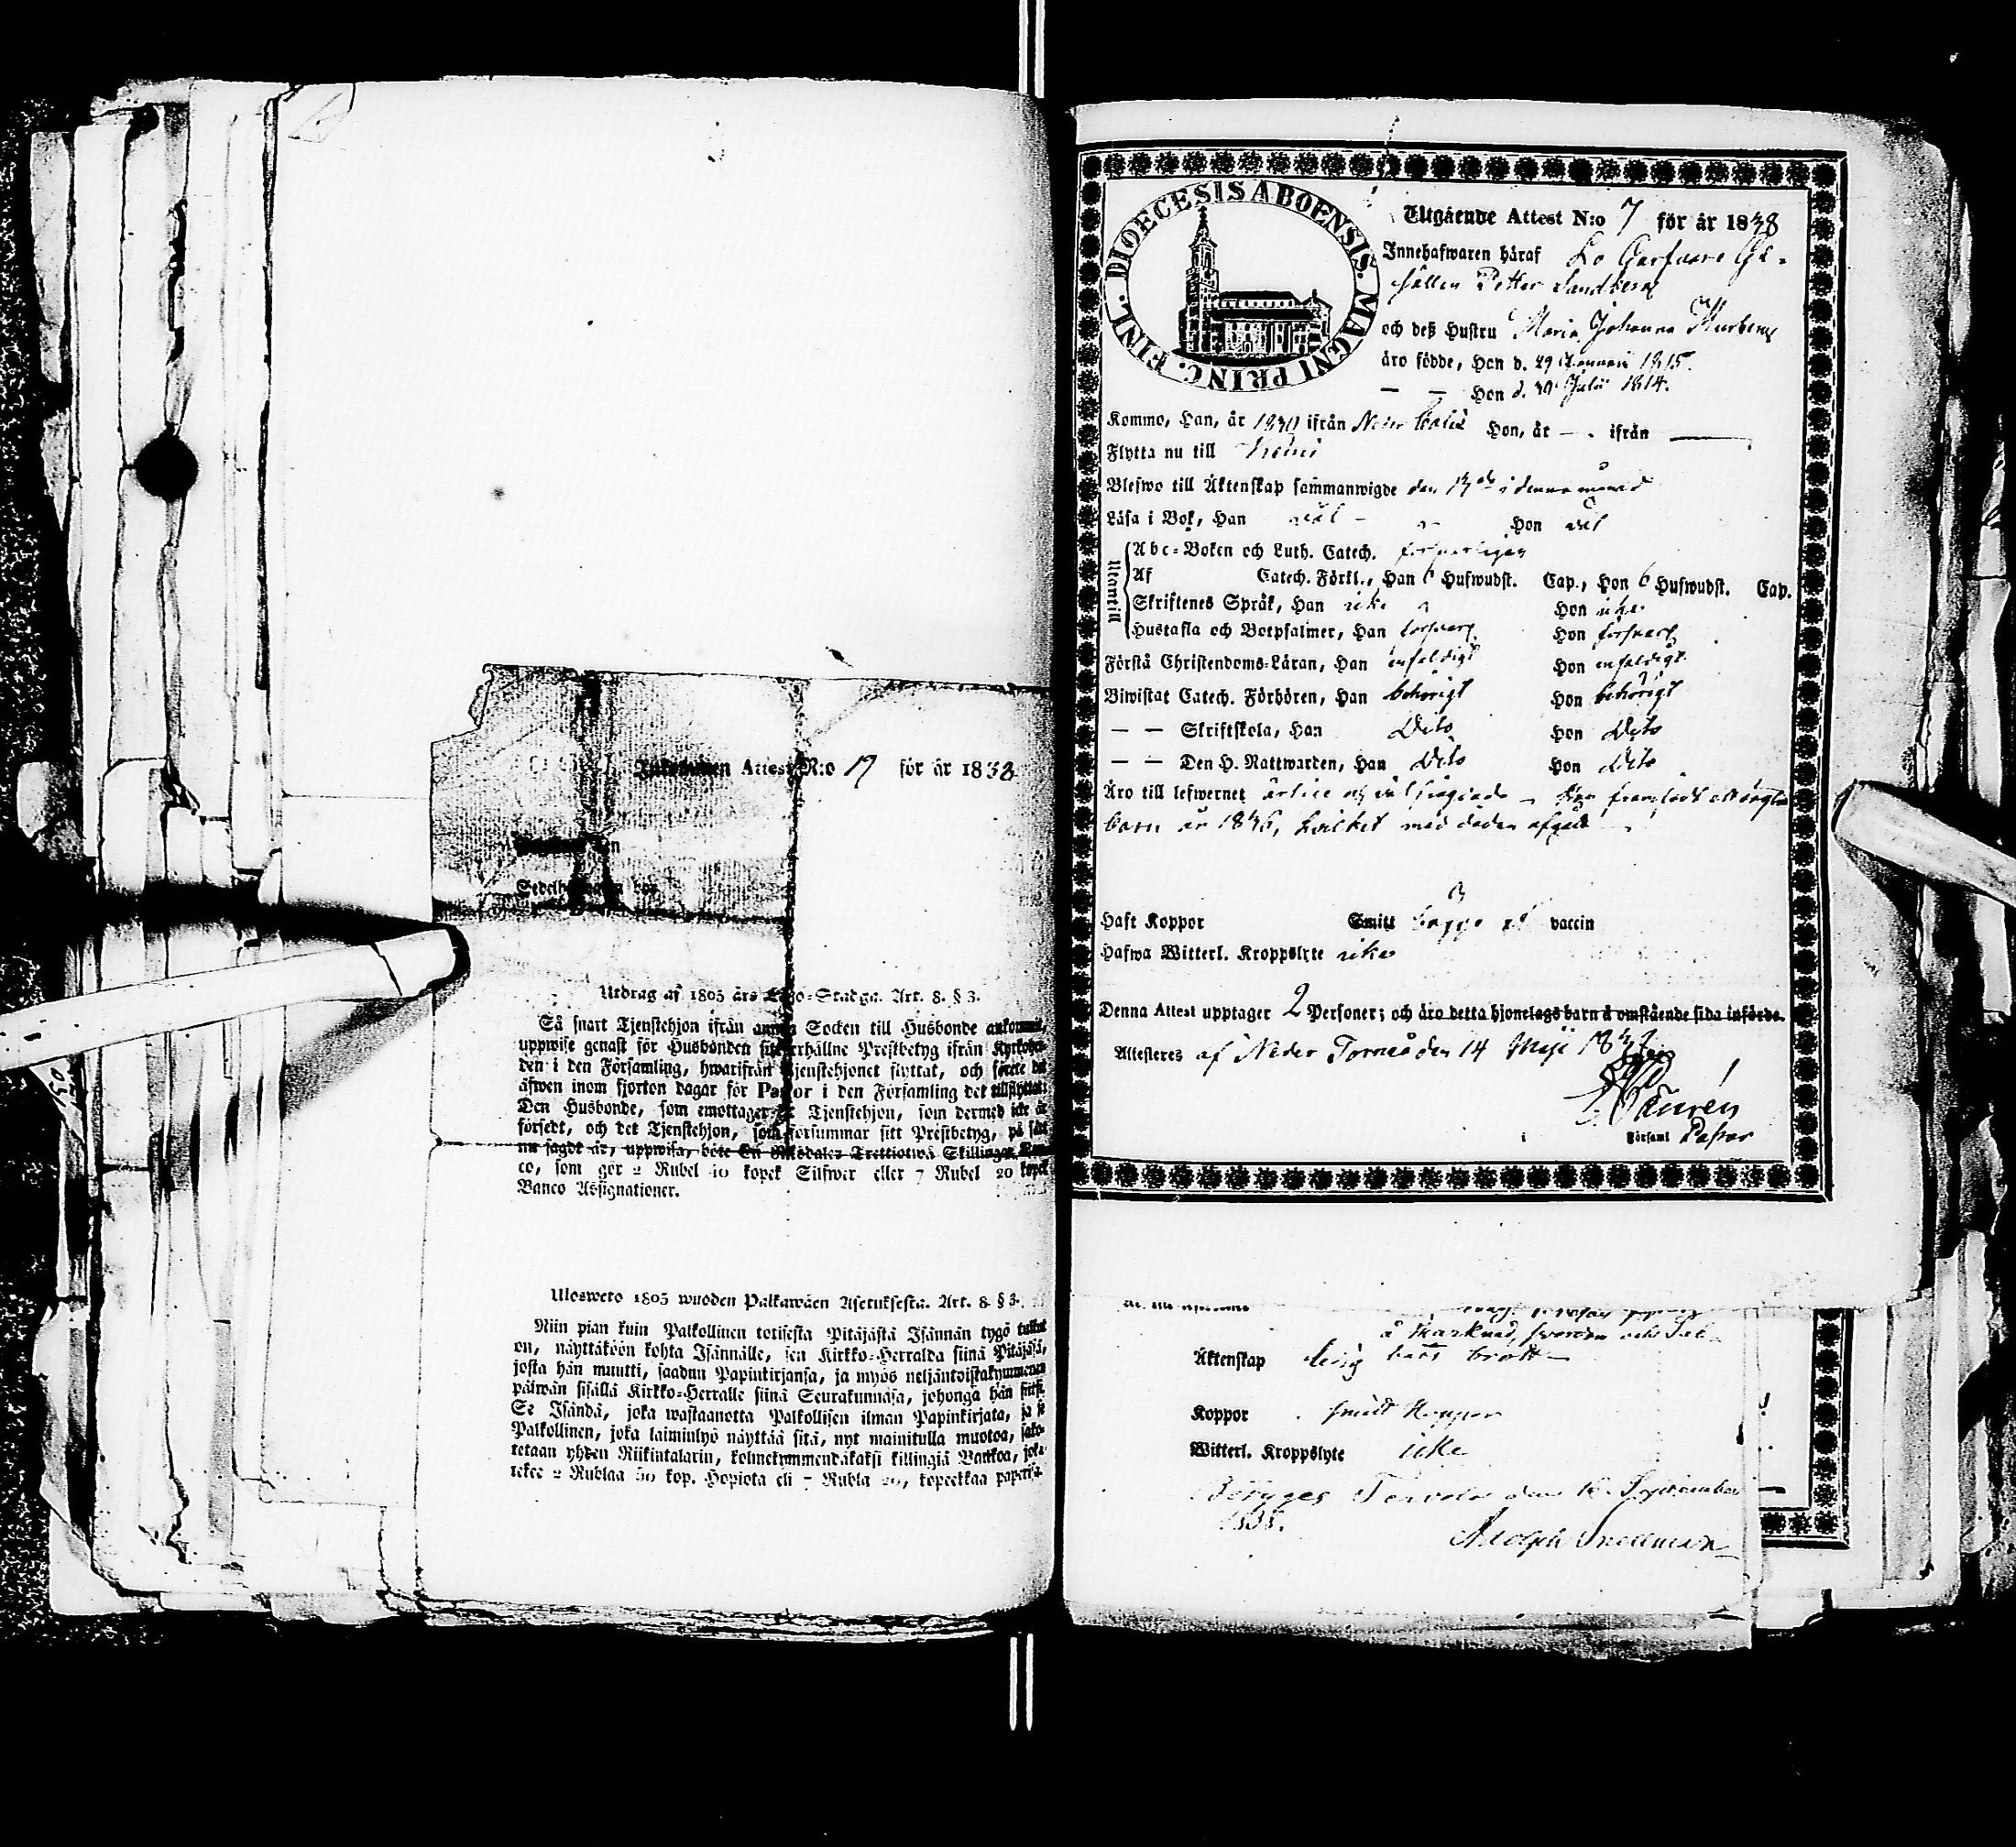 Attest N:o 17 för år 1838
Utdrag af 1805 års Lego-Stadga. Art. 8. § 3.
Så snart Tjenstehjon ifrån annan Socken till Husbonde ankommit,
uppwise genast för Husbonden sitt erhållne Prestbetyg ifrån Kyrkoher-
den i den Församling, hwarifrån Tjenstehjonet flyttat, och förete det
äfwen inom fjorton dagar för Pastor i den Församling det tillflyttat:
Den Husbonde, som emottager Tjenstehjon, som dermed icke är
försedt, och det Tjenstehjon, som försummar sitt Prestbetyg, på sätt
nu sagdt är, uppwisa, böte En Riksdaler Trettiotwå Skillingar Ban-
co, som gör 2 Rubel 40 kopek Silfwer eller 7 Rubel 20 kopek
Banco Assignationer.
Ulosweto 1805 wuoden Palkawäen Asetuksesta. Art. 8 § 3.
Niin pian kuin Palkollinen toisesta Pitäjästä Isännän tygö tullut
on, näyttäköön kohta Isännälle, sen Kirkko-Herralda siinä Pitäjäsä,
josta hän muutti, saadun Papinkirjansa, ja myös neljäntoistakymmenen
päiwän sisällä Kirkko-Herralle siinä Seurakunnasa, johonga hän
Se Isändä, joka wastaanotta Palkollisen ilman Papinkirjata, ja se
Palkollinen, joka laiminlyö näyttää sitä, nyt mainitulla muotoa, sako-
tetaan yhden Riikintalarin, kolmekymmendäkaksi killingiä Bankoa, joka
tekee 2 Rublaa kop. Hopiota eli 7 Rubla 20, kopeekkaa
DIOECESIS ABOENSIS. MAGNI PRINC. FINL.
Utgående Attest N:o 7 för år 1838
Innehafwaren häraf Lo Garfware Ge-
sällen Petter Sandberg
och deß Hustru Maria Johanna
äro födde, Han d. 29 Januari 1815.
— — Hon d. Julii 1814.
Kommo, Han, år ifrån Neder Calix Hon, år — . ifrån —
Flytta nu till Kemi
Blefwo till Äktenskap sammanwigde den i denna månad
Läsa i Bok, Han wäl Hon wäl
Utantill
Abc-Boken och Luth. Catech. förswarligen
Af Catech. Förkl., Han 6 Hufwudst. Cap., Hon 6 Hufwudst. Cap.
Skriftenes Språk, Han icke Hon icke
Hustafla och Botpsalmer, Han förswarl. Hon förswarl.
Förstå Christendoms-Läran, Han enfaldigt Hon enfaldigt
Biwistat Catech. Förhören, Han behörigt Hon behörigt
— — Skriftskola, Han Dito Hon Dito
— — Den H. Nattwarden, Han Dito Hon Dito
Äro till lefwernet ärlige och wäl Hon framfödt ett oägta
barn år 1836, hwilket med döden afgått
Haft Koppor Smitt vaccin
Hafwa Witterl. Kroppslyte icke
Denna Attest upptager 2 Personer; och äro detta hjonelags barn å omstående sida införde.
Attesteres af Neder Torneå den 14 Maji 1838
Församl Pastor
å Marknad,
Äktenskap ledig
Koppor
Witterl. Kroppslyte icke
Betyges Tervola den September
Adolph Snellman